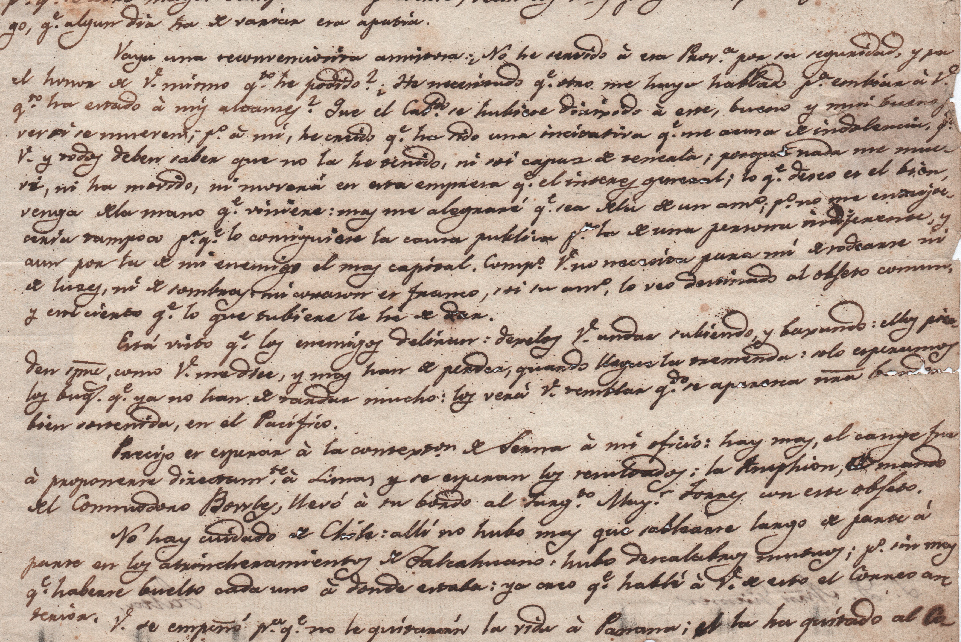 go, q.e algun dia ha de variar era apatia.
Vaya una reconvencioncita amistosa: No he servido à esa Prov.a por su seguridad, y pa
el honor de V. mismo q.to he podido? ¿He necesitado q.e otro me haya hablado p.a embiar à V.
q.to ha estado à mis alcances? Que el Cab.do se hubiese dirijido à este, bueno y mui bueno,
V. y todos deben saber que no la he tenido, ni soi capaz de tenerla; porque nada me mue-
ve, ni ha movido, ni moverá en esta empresa q.e el interes general; lo q.e deseo es el bien,
venga dela mano q.e viniere: mas me alegraré q.e sea dela de un am.o, p.o no me enojte-
ceria tampoco p.r q.e lo consiguiese la causa publica p.r la de una persona indiferente, y
aun por la de mi enemigo el mas capital. Comp.e V. no necesita para mi de rodearse ni
de luces, ni de sombras: mi corazon es franco, si su am.o, lo veo destinado al objeto comun,
y en ciento q.e lo que tubiere le he de dar.
Está visto q.e los enemigos deliran: dejelos V. andar subiendo, y baxando: ellos pier-
den spre, como V. me dice, y mas han de perder, quando llegue la tremenda: solo esperamos
los buq.s q.e ya no han de tardar mucho: los verá V. temblar q.do se aparezca nra
bien sostenida, en el Pacifico.
Preciso es esperar à la contexton de Serna à mi oficio: hay mas, el cange fue
à proponerse directam.te à Lima, y se esperan los resultados; la Amphion, al mando
del Commodoro Bowles, llevó à su bordo al Sarg.to May.r Torres con este objeto.
No hay cuidado de Chile: alli no hubo mas que sablearse largo de parte à
parte en los atrincheramientos de Talcahuano: hubo descalabros mutuos; p.o sin mas
q.e haberse buelto cada uno à donde estaba: ya creo q.e hablé à V. de esto el Correo an-
terior.
V. se empeñó p.a q.e no le quitaran la vida à Panana; el la ha quitado al